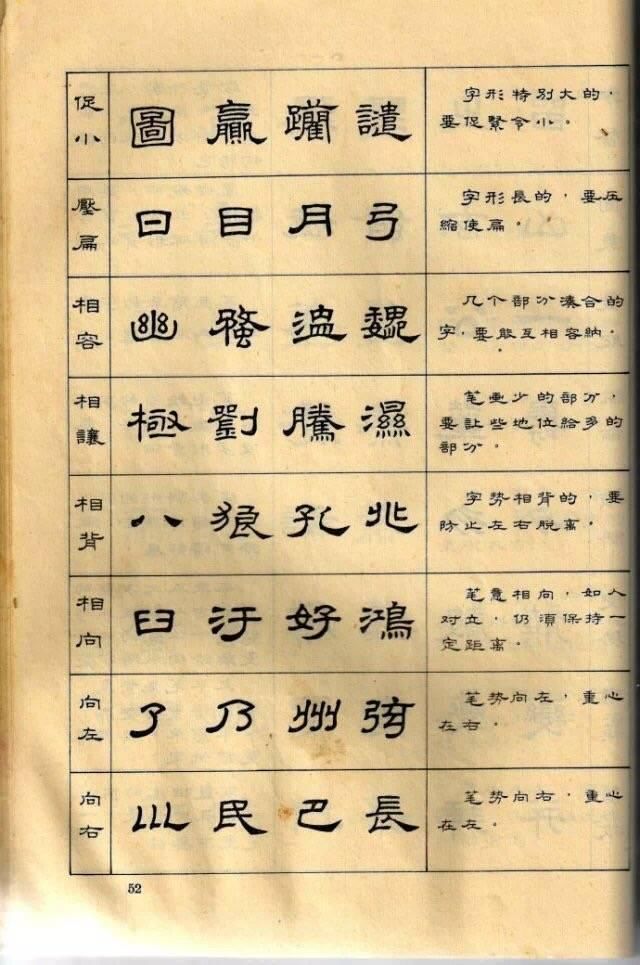 促小
圖 贏 譴
字形特別大的，
要促緊令小。
壓扁
日 目 月 弓
字形長的，要压
縮使扁。
相容
幽 魏
几个部分凑合的
字，要能互相容納。
相讓
極 劉 騰 濕
笔画少的部分，
要让些地位給多的
部分。
相背
八 狼 孔 北
字势相背的，要
防止左右脫离。
相向
臼 汙 好 鴻
笔意相向，如人
对立，仍須保持一
定距离。
向左
了 乃 州 弦
笔势向左，重心
在右。
向右
川 民 巴 長
笔势向右，重心
在左。
52